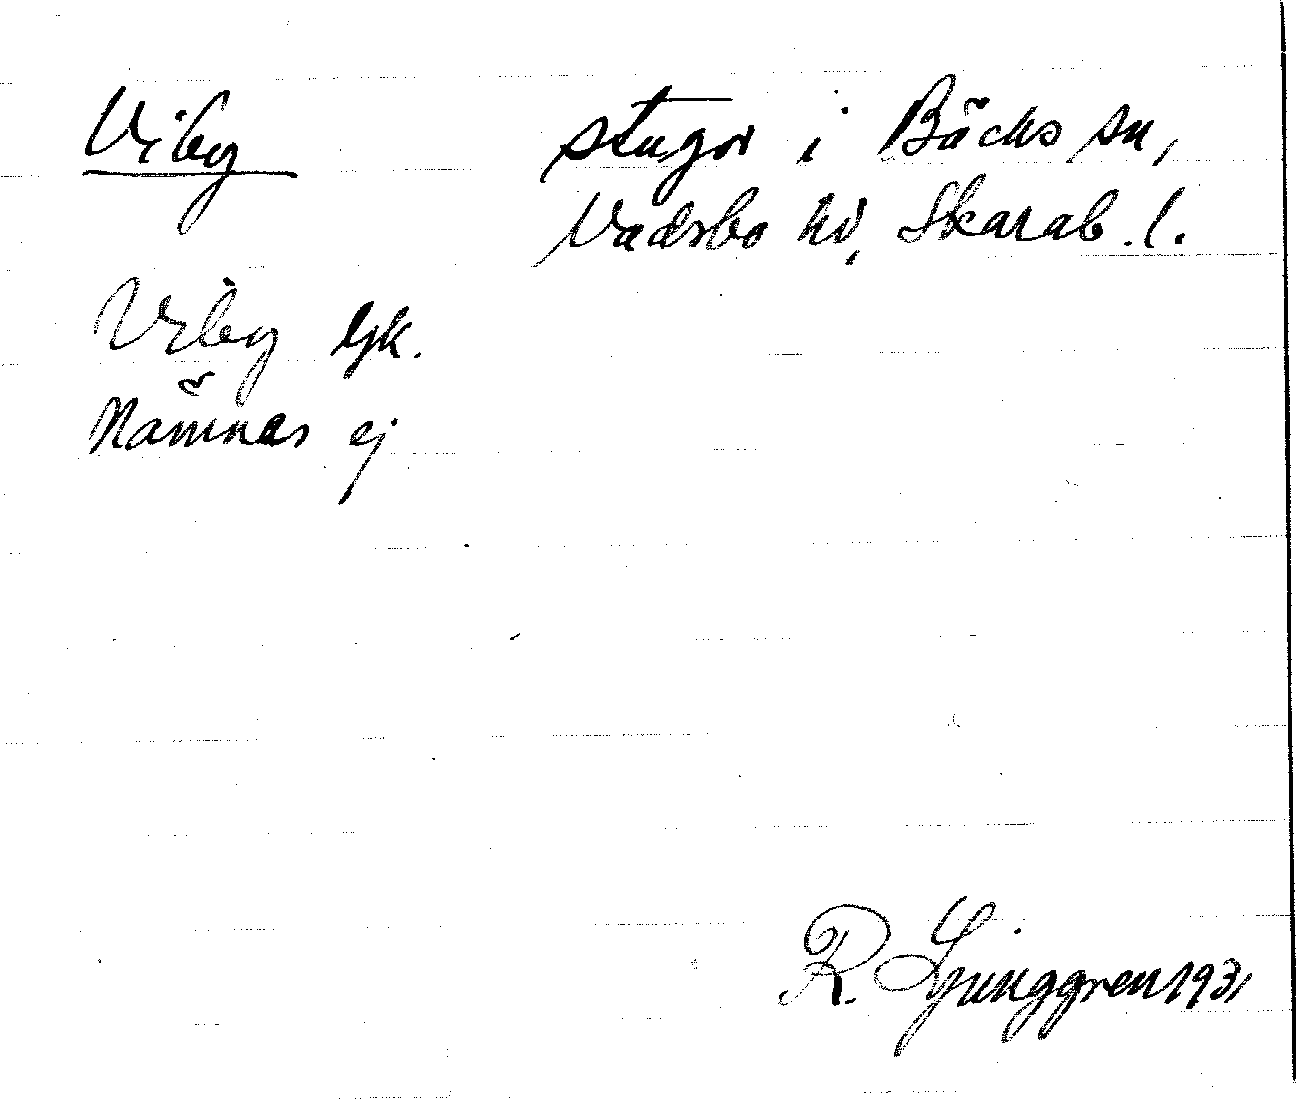 Viby stugor i Bäcks sn,
Vadsbo hd, Skarab. l.
Viby Gk.
Nämnes ej
R. Ljunggren 1931